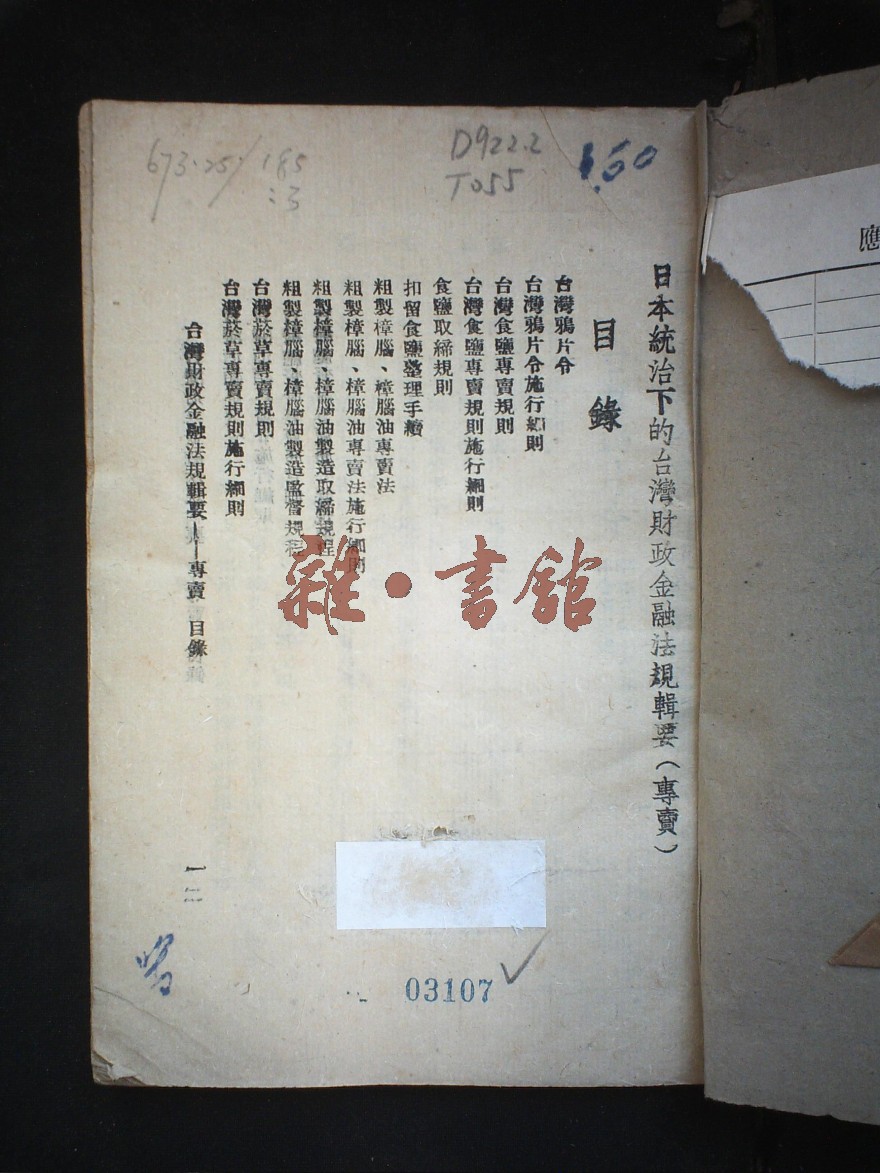 673·25/185
:3
D922.2
T055
1.50
應
日本統治下的台灣財政金融法規輯要(專賣)
目錄
台灣鴉片令
台灣鴉片令施行細則
台灣食鹽專賣規則
台灣食鹽專賣規則施行細則
食鹽取締規則
扣留食鹽整理手續
粗製樟腦、樟腦油專賣法
粗製樟腦、樟腦油專賣法施行細則
粗製樟腦、樟腦油製造取締規程
粗製樟腦、樟腦油製造監督規程
台灣菸草專賣規則
台灣菸草專賣規則施行細則
台灣財政金融法規輯要——專賣 目錄
一
雜·書館
03107